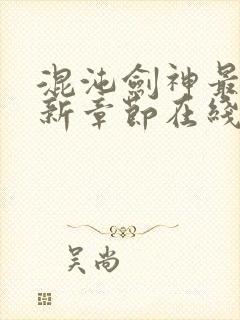 混沌劍神最
新章節在綫
吴尚